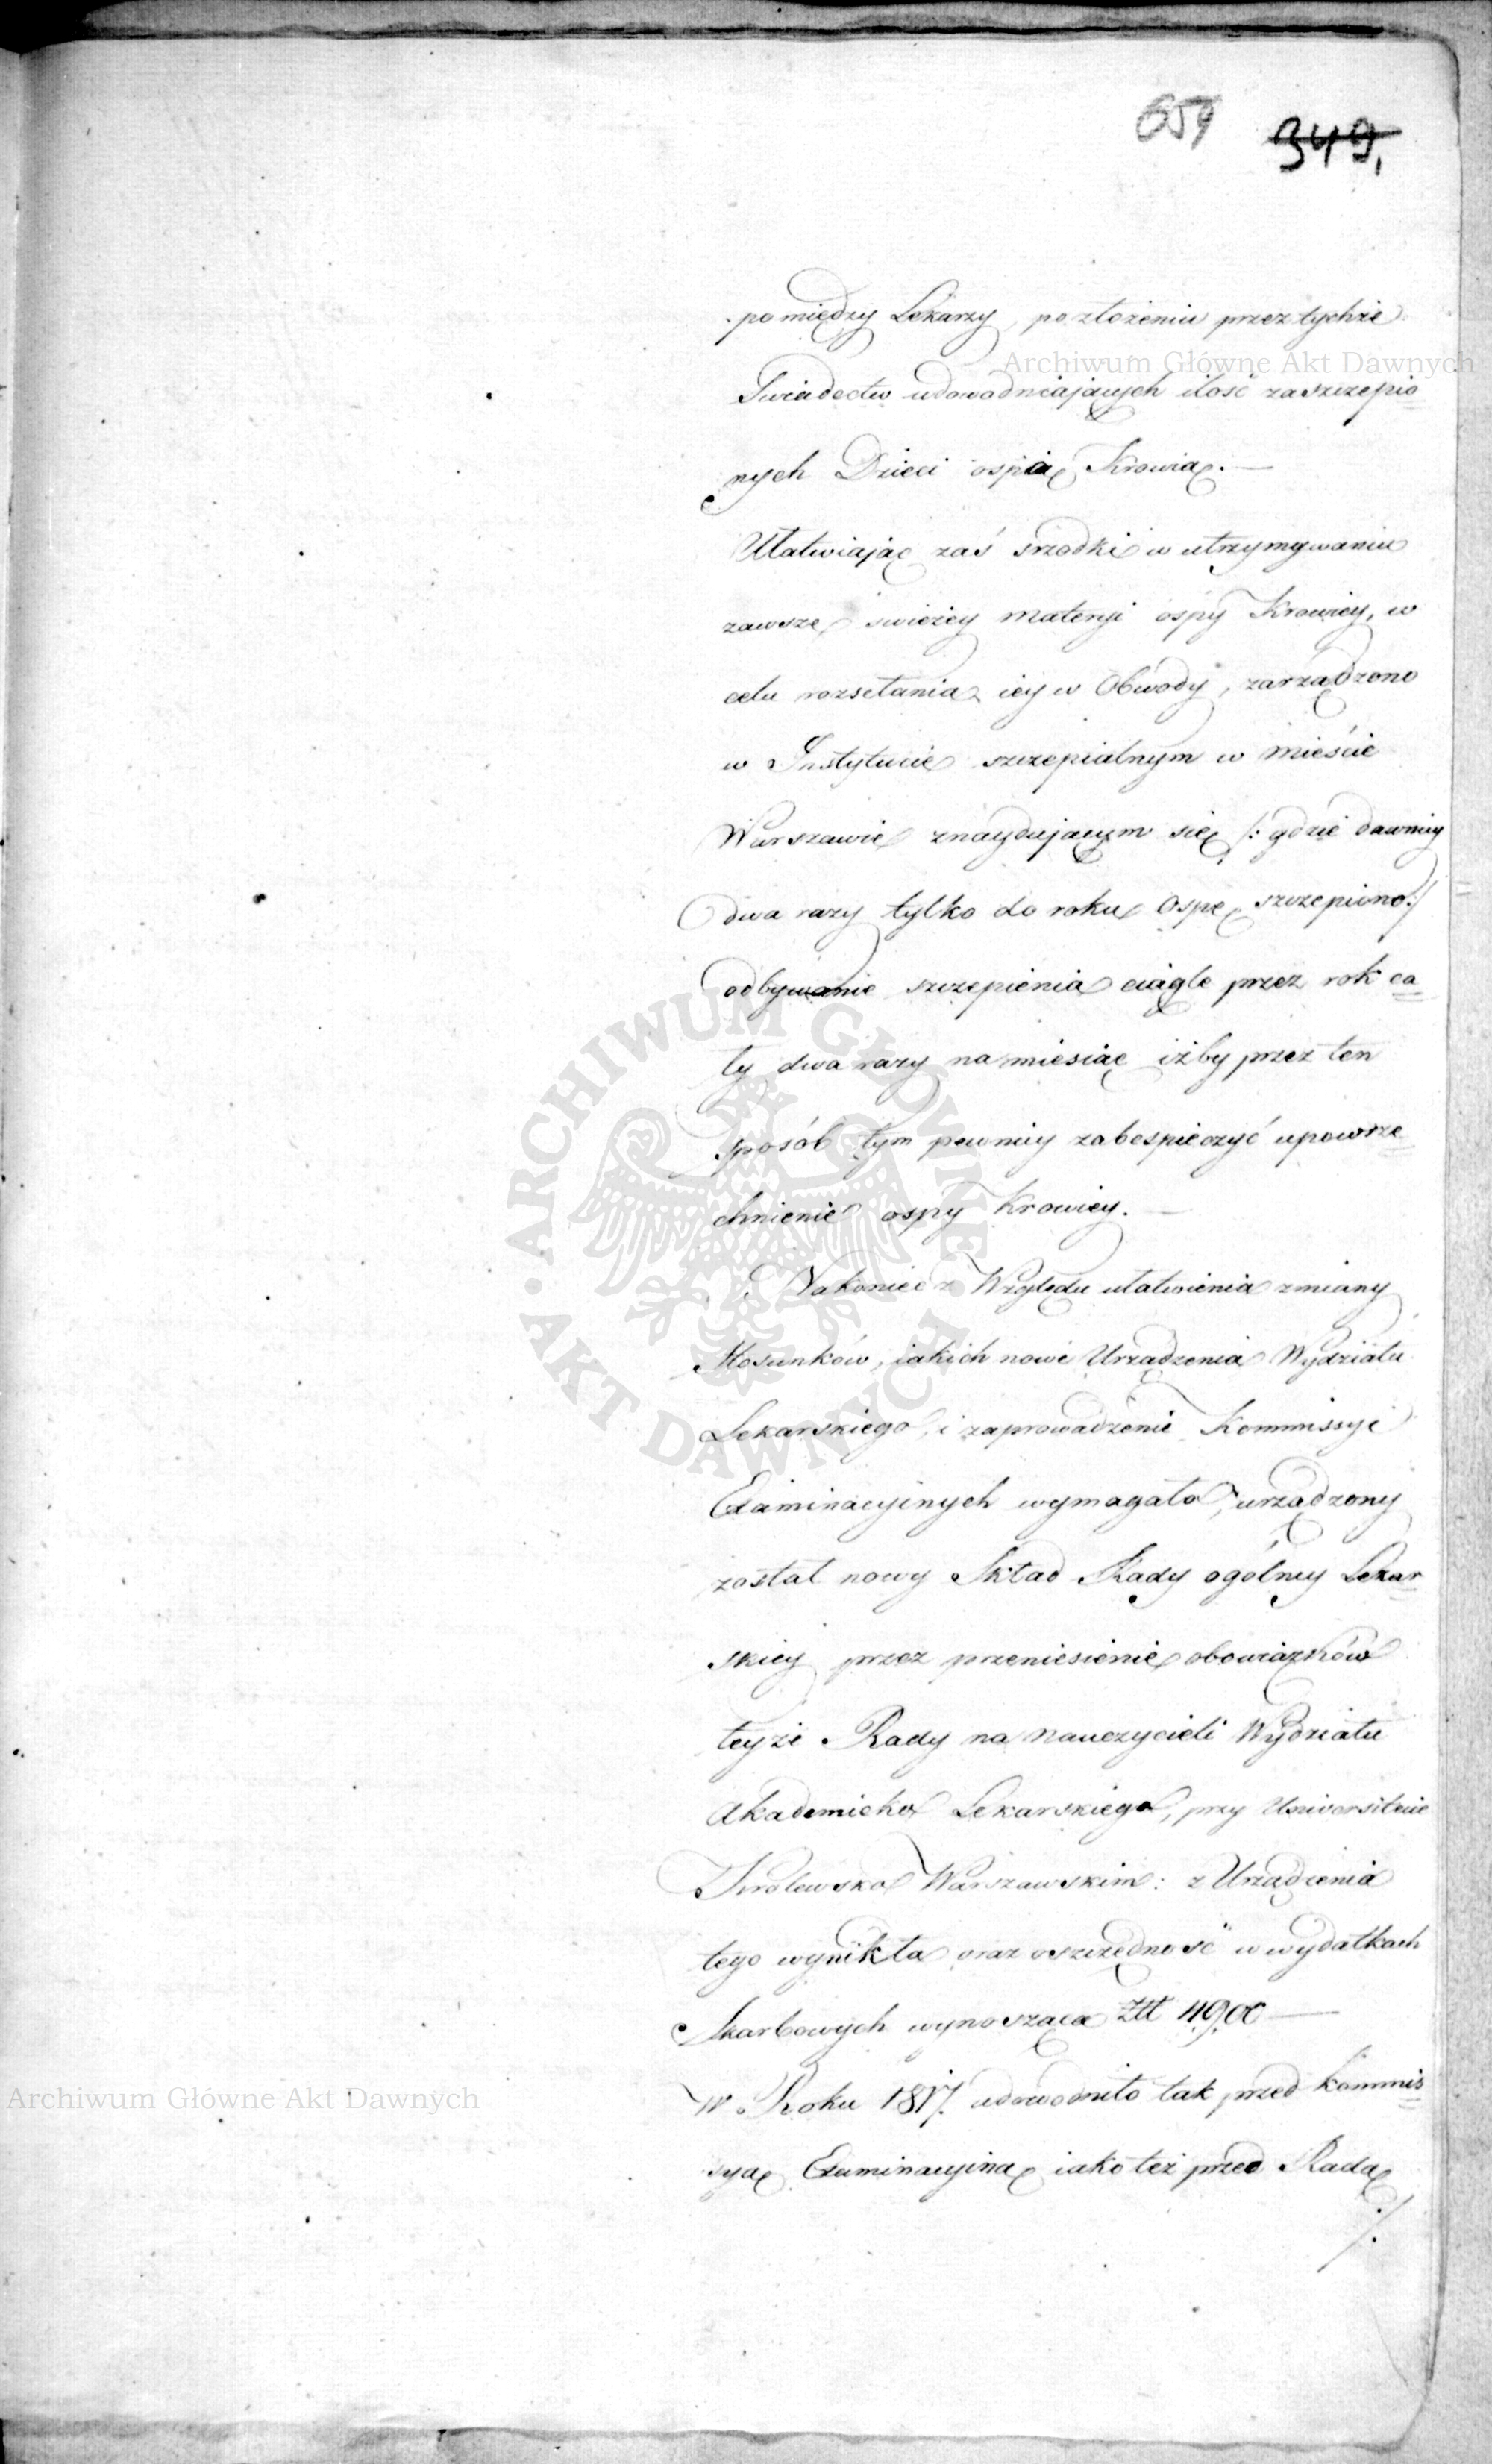 659 349,
pomiędzy Lekarzy, po złożeniu przez tychże
Swiadectw udowodniaiących ilość zaszczepio=
nych Dzieci ospią Krowią. —
Ułatwiaiąc zaś srzodki w utrzymywaniu
zawsze swieżey materyi ospy Krowiey, w
celu rozsełania iey w Obwody, zarządzono
w Instytucie szczepialnym w mieście
Warszawie znayduiącym się /: gdzie dawniey
dwa razy tylko do roku Ospę szczepiono :/
odbywanie szczepienia ciągle przez rok ca=
ły dwa razy na miesiąc iżby przez ten
sposób tym pewniey zabespieczyć upowsze=
chnienie ospy Krowiey. —
Nakoniec z Względu ułatwienia zmiany
Stosunków, iakich nowe Urządzenia Wydziału
Lekarskiego, i zaprowadzenie Kommissyi
Examinacyinych wymagało, urządzony
został nowy Skład Rady ogólney Lekar=
skiey przez przeniesienie obowiązków
teyże Rady na Nauczycieli Wydziału
Akademicko Lekarskiego, przy Uniwersitecie
Królewsko Warszawskim: z Urządzenia
tego wynikła oraz oszczędność w wydatkach
Skarbowych wynosząca Złł 4900 —
W Roku 1817. udowodniło tak przed Kommis=
syą Examinacyiną iako też przed Radą
./.
Archiwum Główne Akt Dawnych
Archiwum Główne Akt Dawnych
ARCHIWUM GŁÓWNE · AKT DAWNYCH ·